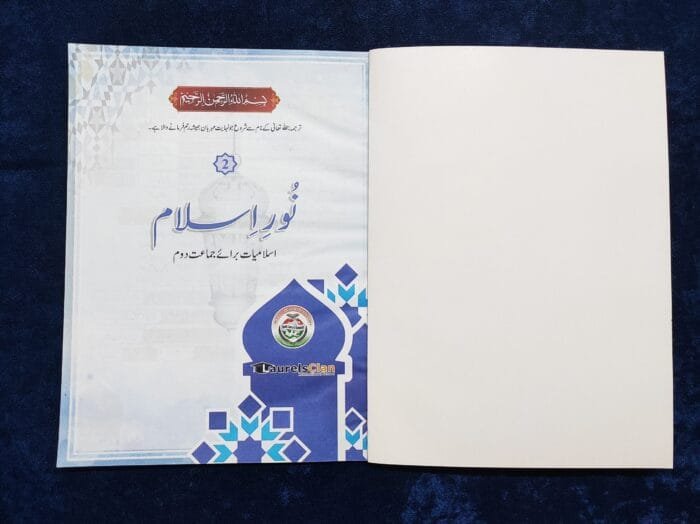 بسم اللہ الرحمٰن الرحیم
ترجمہ: اللہ تعالیٰ کے نام سے شروع جو نہایت مہربان ہمیشہ رحم فرمانے والا ہے۔
2
نُورِ اِسلام
اسلامیات برائے جماعت دوم
LaurelsClan